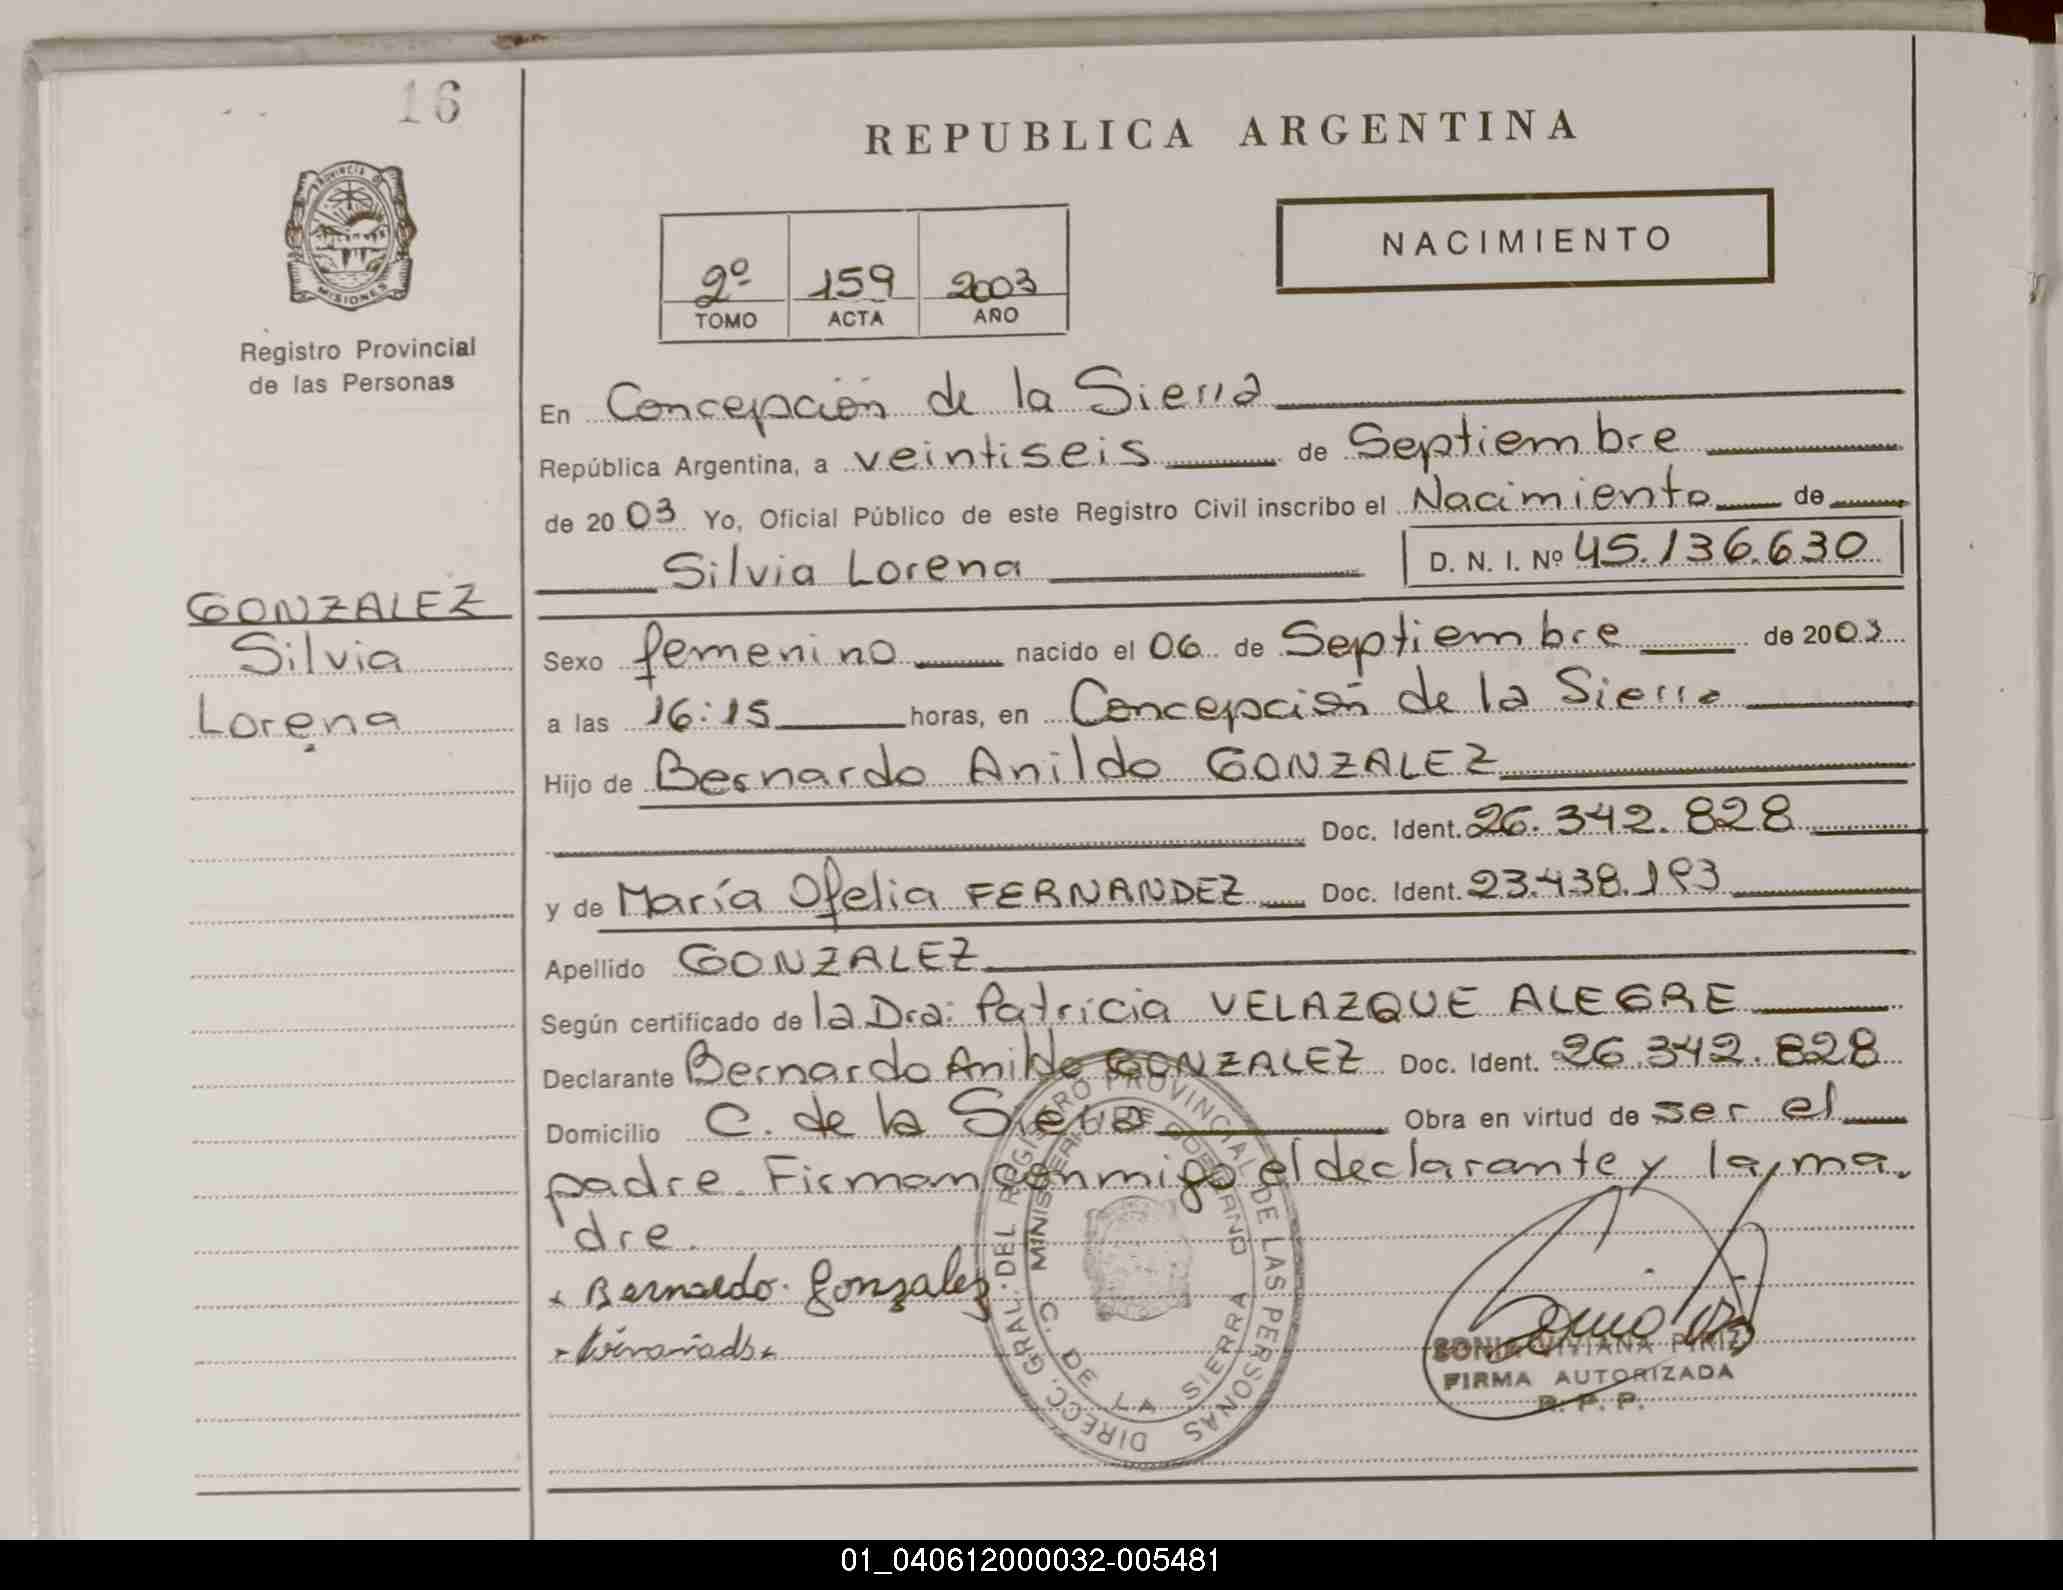 16
REPUBLICA ARGENTINA
NACIMIENTO
PROVINCIA DE
MISIONES
Registro Provincial
de las Personas
2º 159 2003
TOMO ACTA AÑO
En Concepción de la Sierra
República Argentina, a veintiseis de Septiembre
de 2003 Yo, Oficial Público de este Registro Civil inscribo el Nacimiento de
Silvia Lorena D. N. I. Nº 45.136.630
GONZALEZ
Silvia
Lorena
Sexo femenino nacido el 06 de Septiembre de 2003
a las 16:15 horas, en Concepción de la Sierra
Hijo de Bernardo Anildo GONZALEZ
Doc. Ident. 26.342.828
y de María Ofelia FERNANDEZ Doc. Ident. 23.438.193
Apellido GONZALEZ
Según certificado de la Dra: Patricia VELAZQUE ALEGRE
Declarante Bernardo Anildo GONZALEZ Doc. Ident. 26.342.828
Domicilio C. de la Sierra Obra en virtud de ser el
padre. Firman conmigo el declarante y la ma.
dre.
x Bernardo. Gonzalez
DIRECC. GRAL. DEL REGISTRO PROVINCIAL DE LAS PERSONAS
MINISTERIO DE GOBIERNO
C. DE LA SIERRA
SONIA VIVIANA PIRIZ
FIRMA AUTORIZADA
R. P. P.
01_040612000032-005481